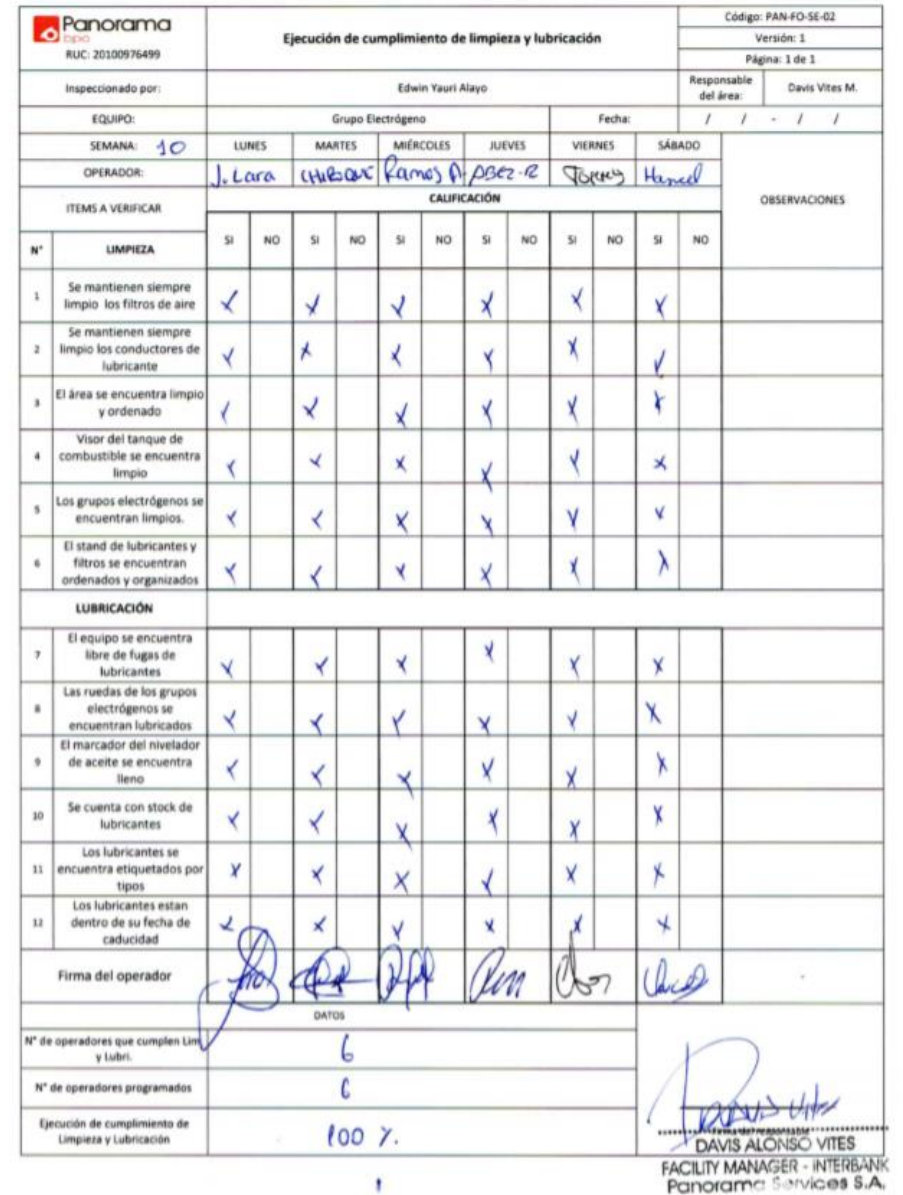 Panorama
bpo
RUC: 20100976499
Ejecución de cumplimiento de limpieza y lubricación
Código: PAN-FO-SE-02
Versión: 1
Página: 1 de 1
Inspeccionado por:
Edwin Yauri Alayo
Responsable del área:
Davis Vites M.
EQUIPO:
Grupo Electrógeno
Fecha:
/ / - / /
SEMANA: 10
LUNES MARTES MIÉRCOLES JUEVES VIERNES SÁBADO
OPERADOR:
J. Lara
Ramos A
Torres
OBSERVACIONES
ITEMS A VERIFICAR
CALIFICACIÓN
N° LIMPIEZA SI NO SI NO SI NO SI NO SI NO SI NO
1 Se mantienen siempre
limpio los filtros de aire
2 Se mantienen siempre
limpio los conductores de
lubricante
3 El área se encuentra limpio
y ordenado
4 Visor del tanque de
combustible se encuentra
limpio
5 Los grupos electrógenos se
encuentran limpios.
6 El stand de lubricantes y
filtros se encuentran
ordenados y organizados
LUBRICACIÓN
7 El equipo se encuentra
libre de fugas de
lubricantes
8 Las ruedas de los grupos
electrógenos se
encuentran lubricados
9 El marcador del nivelador
de aceite se encuentra
lleno
10 Se cuenta con stock de
lubricantes
11 Los lubricantes se
encuentra etiquetados por
tipos
12 Los lubricantes estan
dentro de su fecha de
caducidad
Firma del operador
DATOS
N° de operadores que cumplen Lim
y Lubri.
6
N° de operadores programados
6
Ejecución de cumplimiento de
Limpieza y Lubricación
100 %.
Davis Vites
DAVIS ALONSO VITES
FACILITY MANAGER - INTERBANK
Panorama Services S.A.